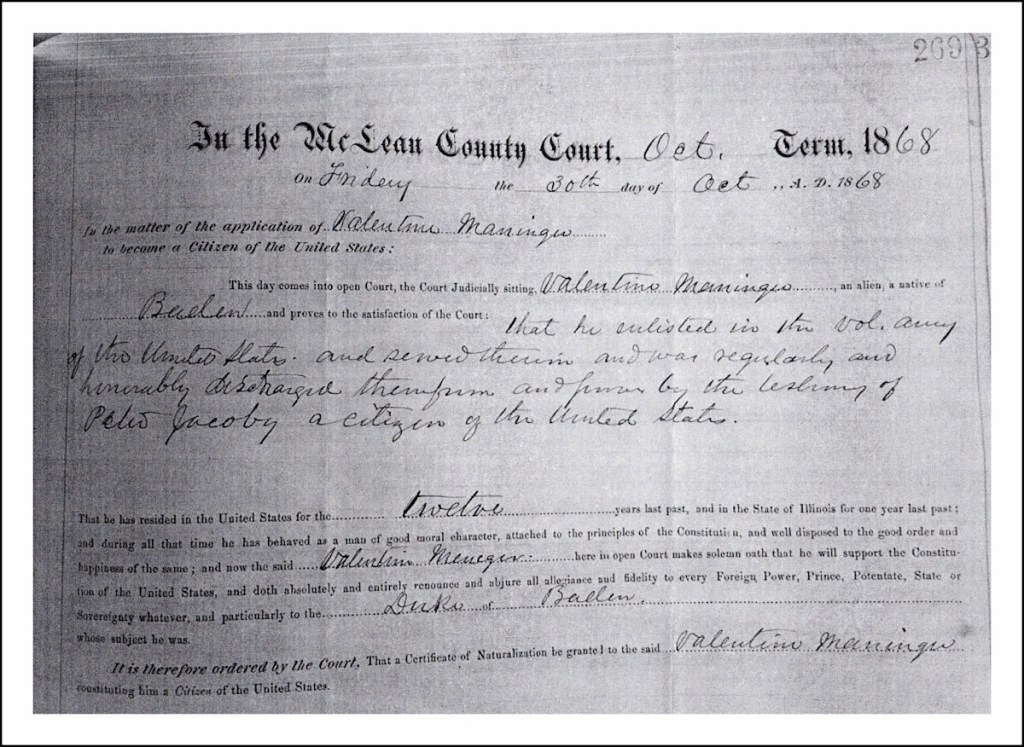 269 3
In the McLean County Court, Oct. Term, 1868
On Friday the 30th day of Oct A. D. 1868
In the matter of the application of Valentine Maninger
to become a Citizen of the United States:
This day comes into open Court, the Court Judicially sitting, Valentine Maninger, an alien, a native of
Baden and proves to the satisfaction of the Court: that he enlisted in the vol. army
of the United States. and served therein and was regularly and
honorably discharged therefrom and proven by the testimony of
Peter Jacoby a citizen of the United States.
That he has resided in the United States for the twelve years last past, and in the State of Illinois for one year last past;
and during all that time he has behaved as a man of good moral character, attached to the principles of the Constitution, and well disposed to the good order and
happiness of the same; and now the said Valentine Meneger here in open Court makes solemn oath that he will support the Constitu-
tion of the United States, and doth absolutely and entirely renounce and abjure all allegiance and fidelity to every Foreign Power, Prince, Potentate, State or
Sovereignty whatever, and particularly to the Duke of Baden.
whose subject he was.
It is therefore ordered by the Court, That a Certificate of Naturalization be granted to the said Valentine Maninger
constituting him a Citizen of the United States.